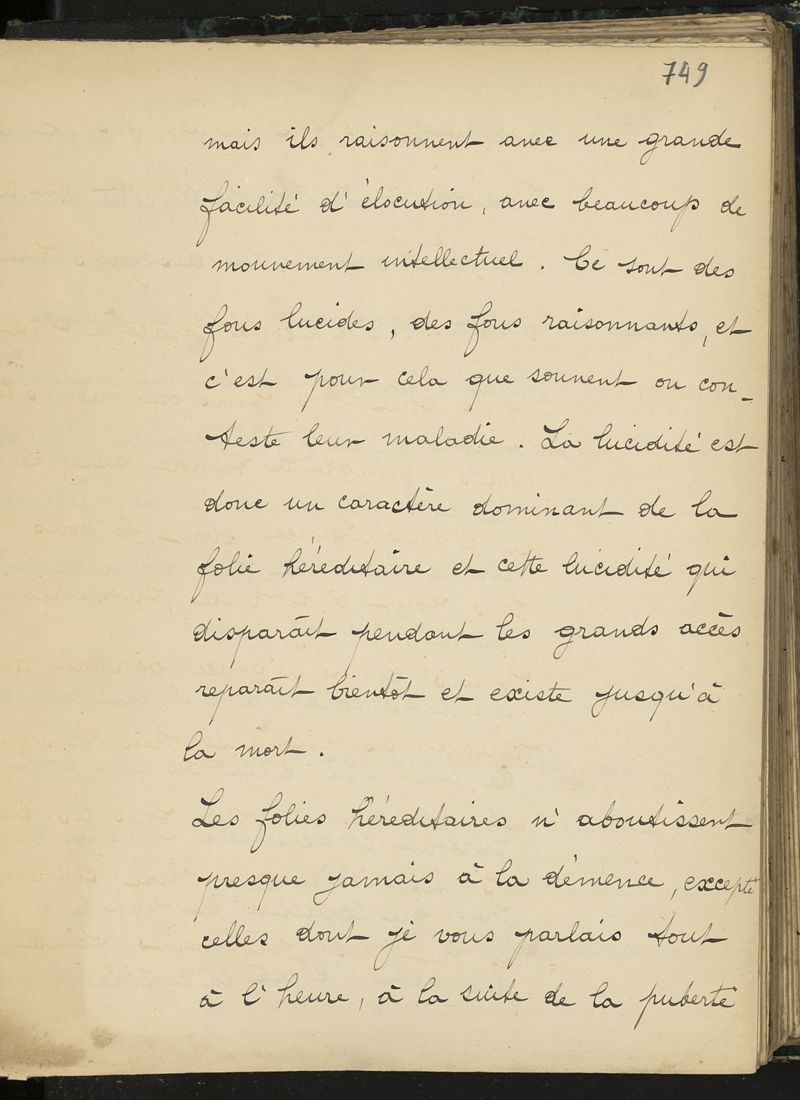 749
mais ils raisonnent avec une grande
facilité d'élocution, avec beaucoup de
mouvement intellectuel. Ce sont des
fous lucides, des fous raisonnants, et
c'est pour cela que souvent on con-
teste leur maladie. La lucidité est
donc un caractère dominant de la
folie héréditaire et cette lucidité qui
disparaît pendant les grands accès
reparaît bientôt et existe jusqu'à
la mort.
Les folies héréditaires n'aboutissent
presque jamais à la démence, excepté
celles dont je vous parlais tout
à l'heure, à la suite de la puberté